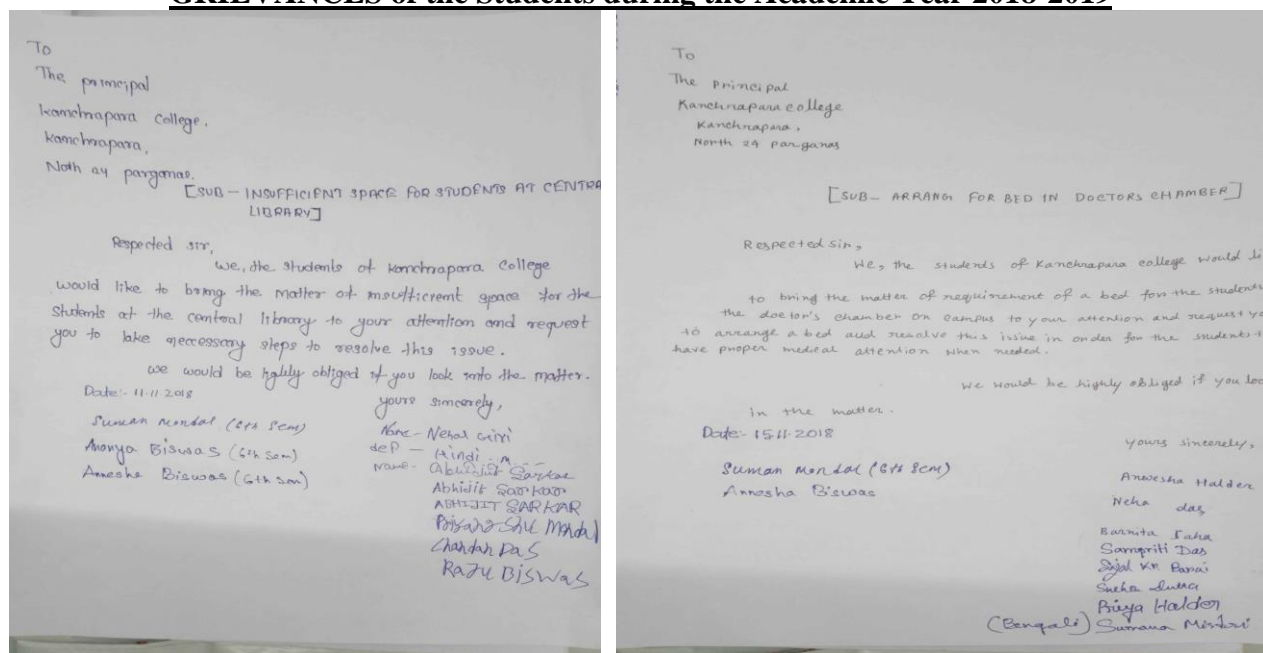 GRIEVANCES of the Students during the Academic Year 2018-2019
To
The principal
kamchrapara College,
kamchrapara,
Noth 24 parganas.
[SUB - INSUFFICIENT SPACE FOR STUDENTS AT CENTRA
LIBRARY]
Respected sir,
we, the students of kamchrapara College
would like to bring the matter of insufficient space for the
Students at the central library to your attention and request
you to take neccessary steps to resolve this issue.
we would be highly obliged if you look into the matter.
Date:- 11.11.2018
yours sincerely,
Suman Mondal (6th Sem)
Anonya Biswas (6th Sem)
Annesha Biswas (6th Sem)
Name - Nehal Giri
deP - Hindi
Name - Abhijit Sarkar
Abhijit Sarkar
ABHIJIT SARKAR
Priyangshu Mondal
Chandan Das
RAJU BISWAS
To
The Principal
Kanchrapara college
Kanchrapara,
North 24 parganas
[SUB- ARRANG FOR BED IN DOCTORS CHAMBER]
Respected sir,
We, the students of Kanchrapara college would li
to bring the matter of requirement of a bed for the students
the doctor's chamber on campus to your attention and request yo
to arrange a bed and resolve this issue in order for the students t
have proper medical attention when needed.
We would be highly obliged if you loo
in the matter.
Date:- 15.11.2018
yours sincerely,
Suman Mondal (6th Sem)
Annesha Biswas
Anwesha Halder
Neha das
Barnita Saha
Sampriti Das
Sneha Dutta
Priya Halder
(Bengali) Sumana Mistri